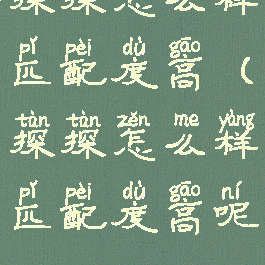 探探怎么样
pǐ pèi dù gāo
匹配度高（
tàn tàn zěn me yàng
探探怎么样
pǐ pèi dù gāo ní
匹配度高呢